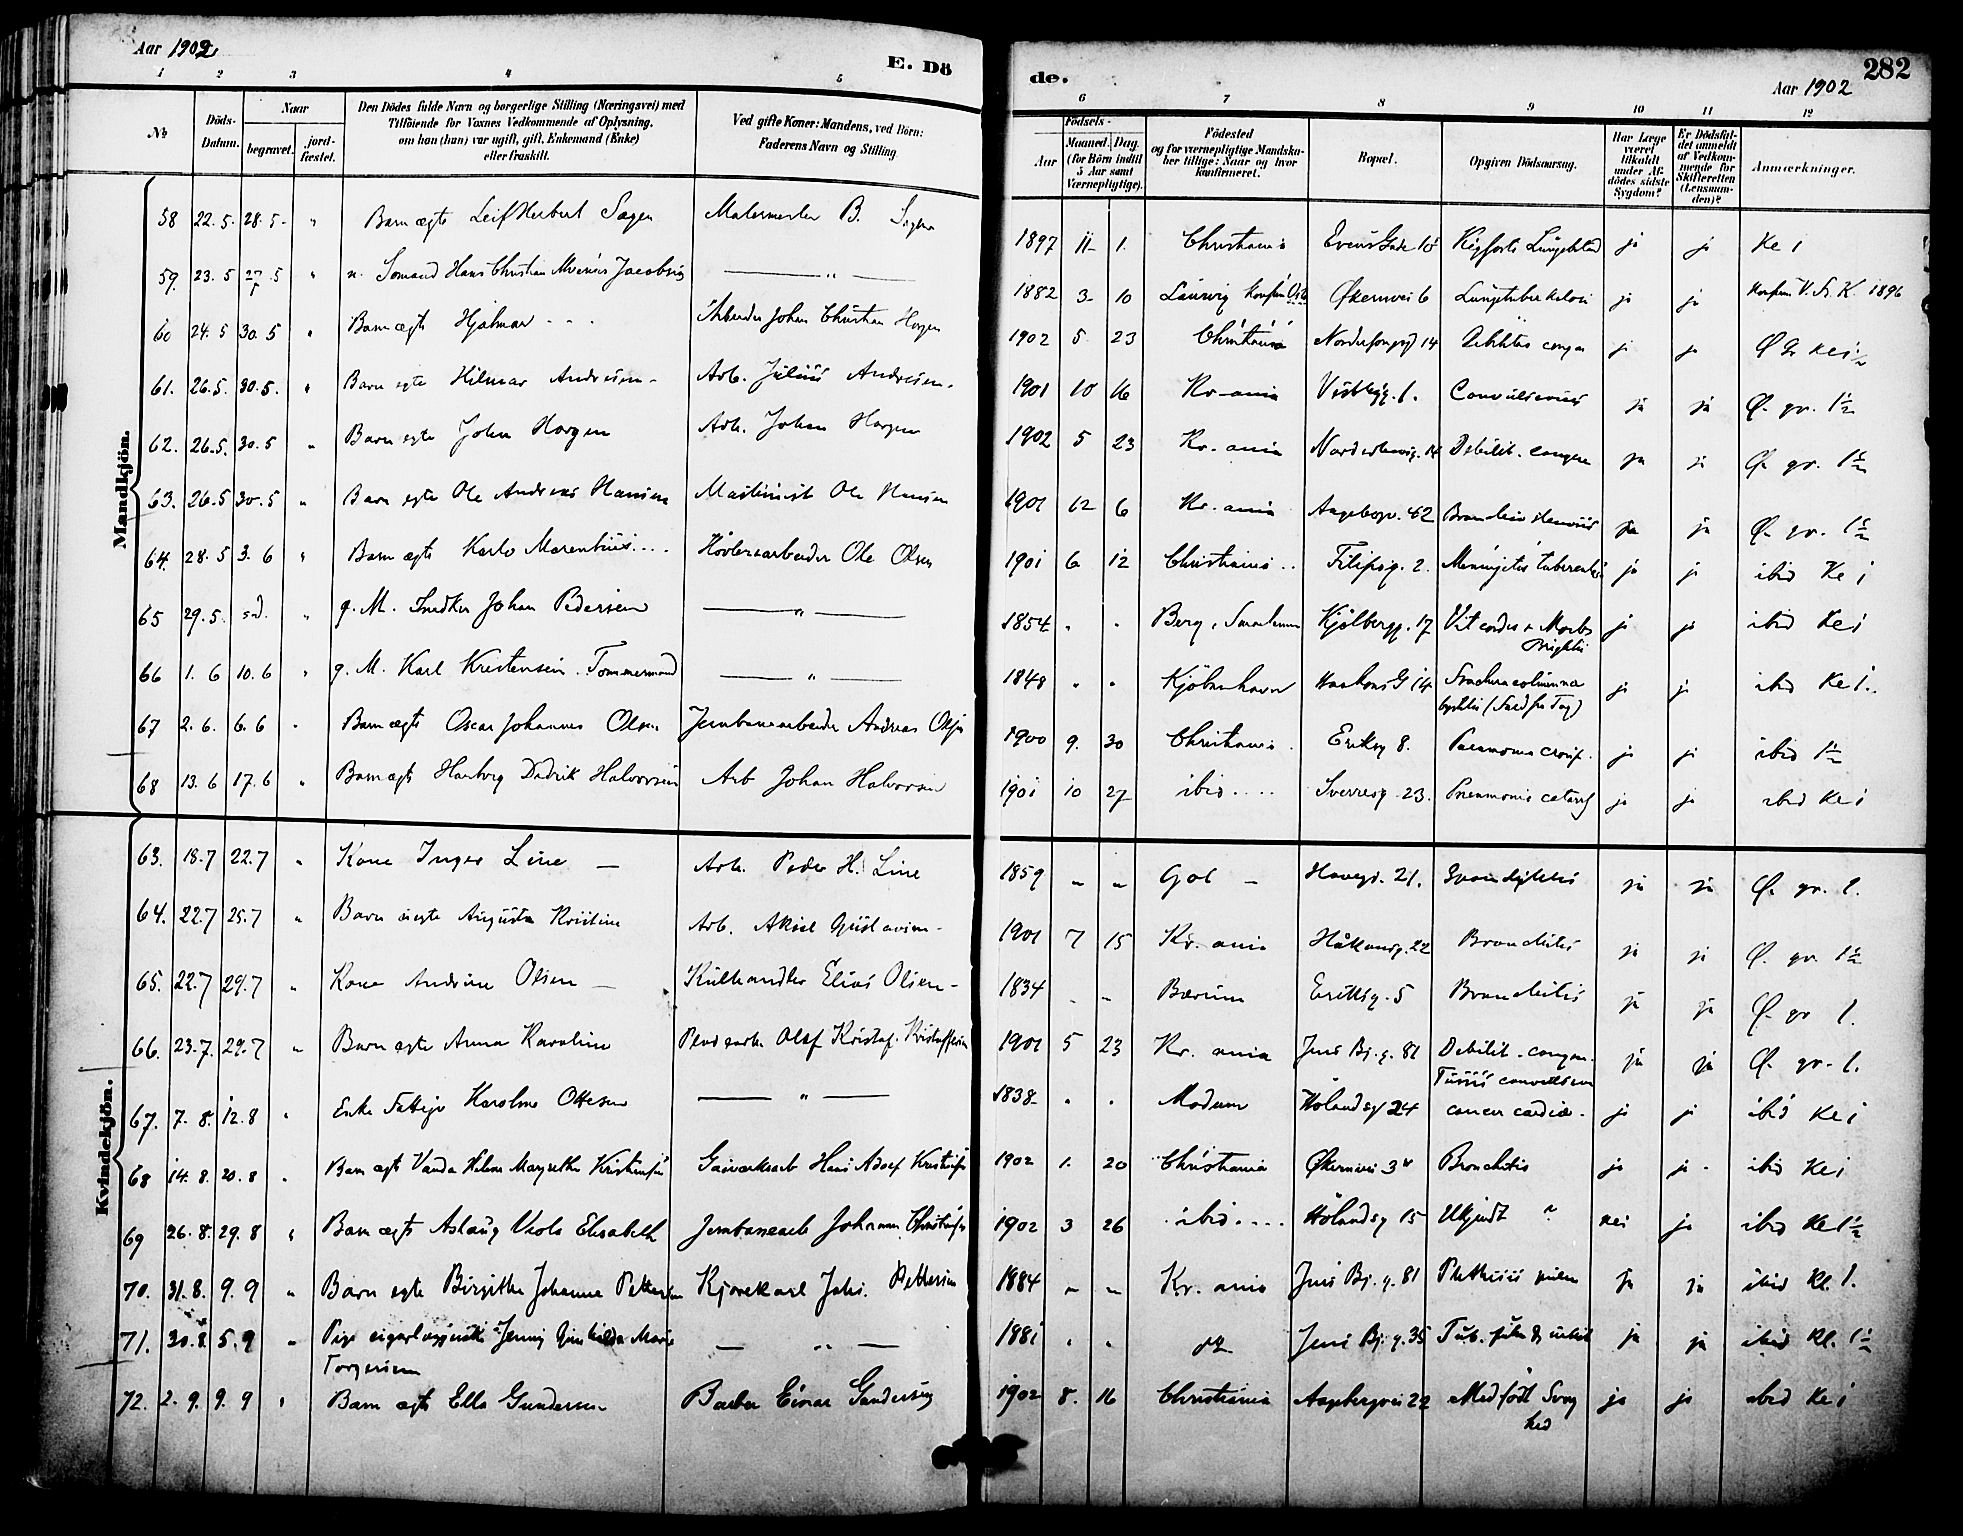 Aar 1902
E. Dö
de.
Aar 1902
282
1 2 3 4 5
6 7 8 9 10 11 12
No
Döds-Datum.
Naar
begravet.
jord-fæstet.
Den Dödes fulde Navn og borgerlige Stilling (Næringsvei) med
Tilföiende for Voxnes Vedkommende af Oplysning,
om han (hun) var ugift, gift, Enkemand (Enke)
eller fraskilt.
Ved gifte Koner: Mandens, ved Börn:
Faderens Navn og Stilling.
Födsels-
Aar
Maaned. Dag.
(for Börn indtil
5 Aar samt
Værnepligtige).
Födested
og for værnepligtige Mandska-
ber tillige: Naar og hvor
konfirmeret.
Bopæl.
Opgiven Dödsaarsag.
Har Læge
været
tilkaldt
under Af-
dödes sidste
Sygdom?
Er Dödsfal-
det anmeldt
af Vedkom-
mende for
Skifteretten
(Lensman-
den)?
Anmærkninger.
Mandkjön.
58 22. 5. 28. 5 " Barn ægte Leif Herbert Sagen Malermester B. Sagen 1897 11 1. Christiania ja ja
59. 23. 5 27. 5 " Hans Christian Jacobsen " 1882 3 10 Laurvig Økernvei 6 Lungetuberkelose ja ja 1896
60 24. 5 30. 5 " Barn ægte Hjalmar Johan Christian Horgen 1902 5 23 Christiania 14 ja ja
61. 26. 5. 30. 5. " Barn egte Hilmar Andresen Arb. Julius Andresen. 1901 10 16 Kr-ania ja ja Ø. gr. 1½
62. 26. 5. 30. 5 " Barn egte John Horgen Arb. Johan Horgen 1902 5 23 Kr. ania 14 Debilit. congen ja ja Ø. gr. 1½
63. 26. 5 30. 5 " Barn egte Ole Andreas Hansen Maskinist Ole Hansen 1901 12 6 Kr. ania 42 ja ja Ø. gr. 1½
64. 28. 5 3. 6 " Barn ægte Karlo Marentius Høvleriarbeider Ole Olsen 1901 6 12 Christiania Filipsg. 2. Meningitis tubercul. ja ja ibid Kl 1
65 29. 5. " g. M. Snedker Johan Pedersen " 1854 " " Berg, Kjølbergg. 17 Vit. cordis & Morb. Brightii ja ja ibid Kl 1
66 1. 6 10. 6 " g. M. Karl Kristensen Tømmermand " 1848 " " Kjøbenhavn Haakons G 14 ja ja ibid Kl 1.
67 2. 6. 6. 6 " Barn ægte Oscar Johannes Olsen Jernbanearbeider Andreas Olsen 1900 9. 30 Christiania Eriksg 8. Pneumonia croup. ja ja ibid 1½
68 13. 6 17. 6 " Barn ægte Dedrik Halvorsen Arb Johan Halvorsen 1901 10 27 ibid Sverresg 23. Pneumonia catarrh ja ja ibid Kl 1
Kvindekjön.
63. 18. 7 22. 7 " Kone Inger Line Arb. Peder H. Line 1859 " " Gol Haveg. 21. ja ja Ø. gr. 1.
64. 22. 7 25. 7 " Barn uegte Augusta Kristine Arb. Aksel Gustavsen 1901 7 15 Kr. ania Håkonsg. 22 Bronchitis ja ja Ø. gr. 1½
65. 22. 7 29. 7 " Kone Andrine Olsen Kulhandler Elias Olsen 1834 " " Bærum Eriksg. 5 Bronchitis ja ja Ø. gr 1.
66. 23. 7. 29. 7 " Barn egte Anna Karoline Olaf Kristof. Kristoffersen 1901 5 23 Kr. ania Jens Bj. g. 81 Debilit. congen. Tussis convulsiva ja ja Ø. gr. 1.
67. 7. 8. 12. 8 " Enke Karoline Ottesen " 1838 " " Modum Hølandsg 24 cancer cardiæ ja ja ibid Kl 1
68 14. 8. 20. 8 " Barn ægte Vanda Helene Margrethe Kristensen Gasværksarb Hans Adolf Kristensen 1902 1. 20 Christiania Økernvei 3 Bronchitis ja ja ibid Kl 1
69 26. 8. 29. 8 " Barn ægte Aslaug Viola Elisabeth Jernbanearb Johannes 1902 3 26 ibid Hølandsg 15 Ukjendt ? nei ja ibid Kl 1½
70. 31. 8. 9. 9 " Barn egte Birgitte Johanne Pettersen Kjørekarl Johs. Pettersen 1884 " " Kr. ania Jens Bj. g. 81 Phthisis pulm ja ja ibid Kl. 1.
71. 30. 8. 5. 9 " Pige Jenny Gunhilda Marie Torgersen " 1881 " " Jens Bj. g. 35 Tub. pulm & ja ja ibid Kl. 1½
72. 2. 9. 9. 9 " Barn ægte Ella Gundersen Barber Einar Gundersen 1902 8. 16 Christiania 22 Medfødt Svaghed ja ja ibid Kl 1